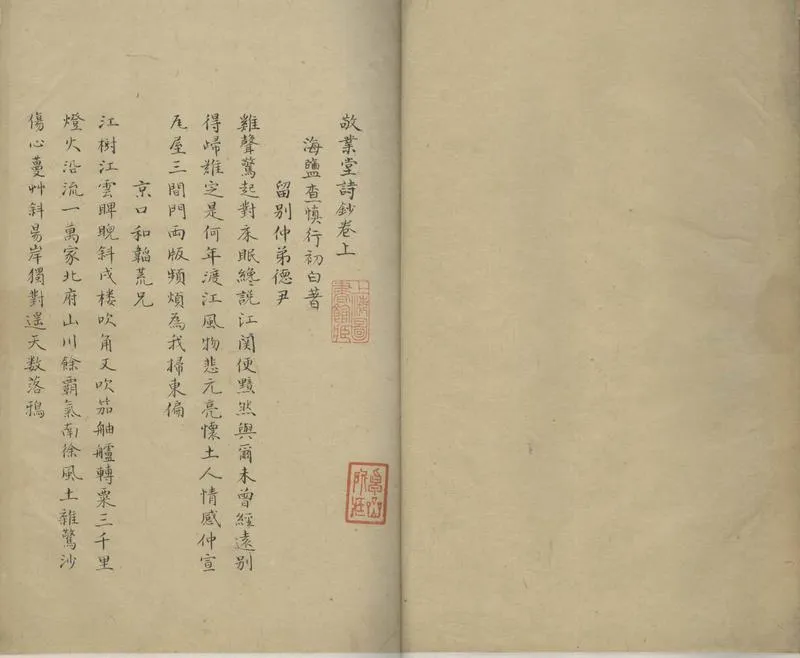 敬業堂詩鈔卷上
海鹽查慎行初白著
留别仲弟德尹
雞聲驚起對床眠纔說江関便黯然與爾未曾經遠别
得歸難定是何年渡江風物悲元亮懷土人情感仲宣
瓦屋三間門兩版頻煩為我掃東偏
京口和韜荒兄
江樹江雲睥睨斜戍楼吹角又吹笳舳艫轉粟三千里
燈火沿流一萬家北府山川餘霸氣南徐風土雜驚沙
傷心蔓艸斜昜岸獨對遥天数落鴉
上海圖
書館藏